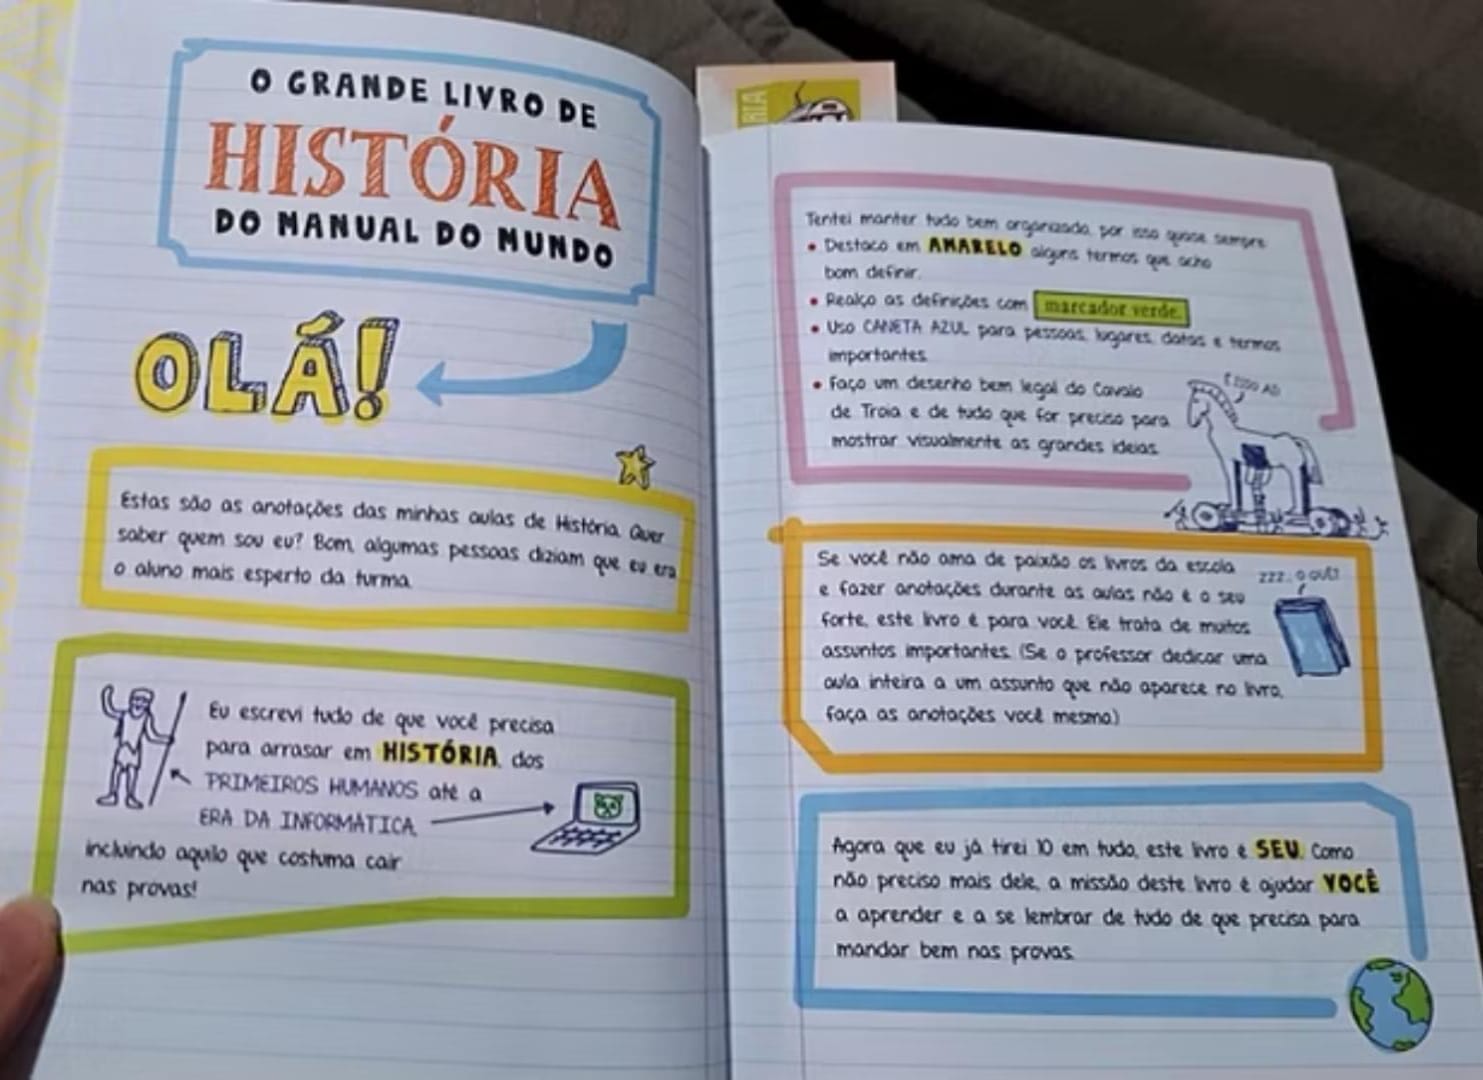 O GRANDE LIVRO DE
HISTÓRIA
DO MANUAL DO MUNDO
OLÁ!
Estas são as anotações das minhas aulas de História. Quer
saber quem sou eu? Bom, algumas pessoas diziam que eu era
o aluno mais esperto da turma.
Eu escrevi tudo de que você precisa
para arrasar em HISTÓRIA, dos
PRIMEIROS HUMANOS até a
ERA DA INFORMÁTICA,
incluindo aquilo que costuma cair
nas provas!
RIA
Tentei manter tudo bem organizado, por isso quase sempre:
• Destaco em AMARELO alguns termos que acho
bom definir.
• Realço as definições com marcador verde.
• Uso CANETA AZUL para pessoas, lugares, datas e termos
importantes.
• Faço um desenho bem legal do Cavalo
de Troia e de tudo que for preciso para
mostrar visualmente as grandes ideias.
É ISSO AÍ!
Se você não ama de paixão os livros da escola
e fazer anotações durante as aulas não é o seu
forte, este livro é para você. Ele trata de muitos
assuntos importantes. (Se o professor dedicar uma
aula inteira a um assunto que não aparece no livro,
faça as anotações você mesmo.)
ZZZ... O QUÊ?
Agora que eu já tirei 10 em tudo, este livro é SEU. Como
não preciso mais dele, a missão deste livro é ajudar VOCÊ
a aprender e a se lembrar de tudo de que precisa para
mandar bem nas provas.